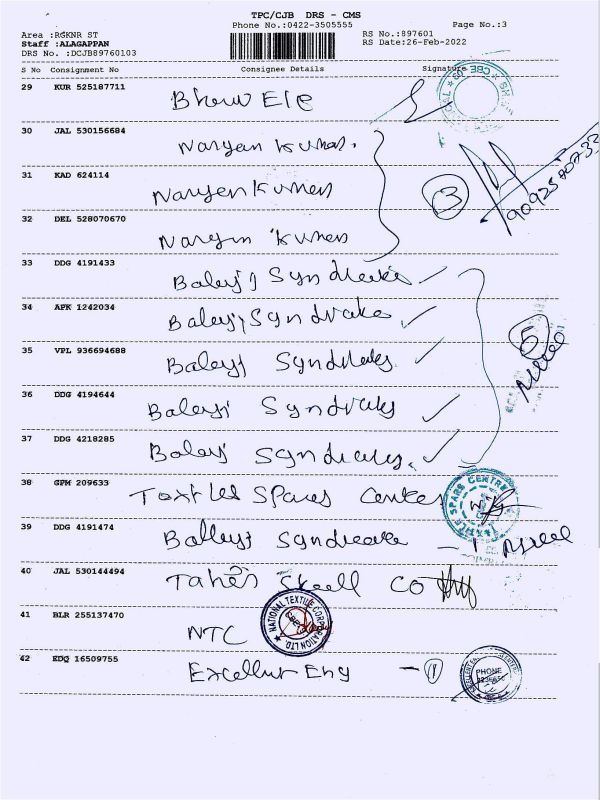 TPC/CJB DRS - CMS
Phone No.:0422-3505555
Page No.:3
Area :RGKNR ST
RS No.:897601
Staff :ALAGAPPAN
RS Date:26-Feb-2022
DRS No. :DCJB89760103
S No Consignment No Consignee Details Signature
29 KUR 525187711
30 JAL 530156684 Naryen Kumar.
31 KAD 624114 Naryen Kumar
32 DEL 528070670 Naryen Kumar
3
33 DDG 4191433 Balayj Syndicate
34 APK 1242034 Balayj Syndicate
35 VPL 936694688 Balayj Syndicate
5
36 DDG 4194644 Balayj Syndicate
37 DDG 4218285 Balayj Syndicate
38 GPM 209633 Textiles Spares Center
TEXTILE SPARS CENTRE
39 DDG 4191474 Balayj Syndicate - 1
40 JAL 530144494 Steel Co
41 BLR 255137470 NTC
NATIONAL TEXTILE CORPORATION LTD.
42 EDQ 16509755 Excellent Eng - 1
PHONE